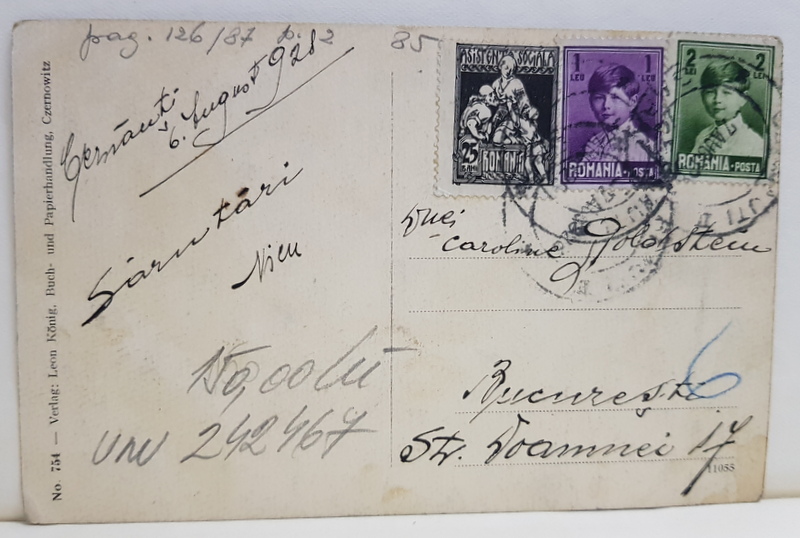 pag. 126/87 p. 2
85
Cernăuți
6. August 928
Sărutări
Nicu
150,00 lei
UNU 242467
No. 754 — Verlag: Leon König, Buch- und Papierhandlung, Czernowitz
ASISTENȚA SOCIALA
25 BANI
ROMANIA
1 LEU 1 LEU
ROMÂNIA·POSTA
2 LEI 2 LEI
ROMÂNIA·POSTA
Dnei
Caroline Goldstein
6
București
Str. Doamnei 17
11055